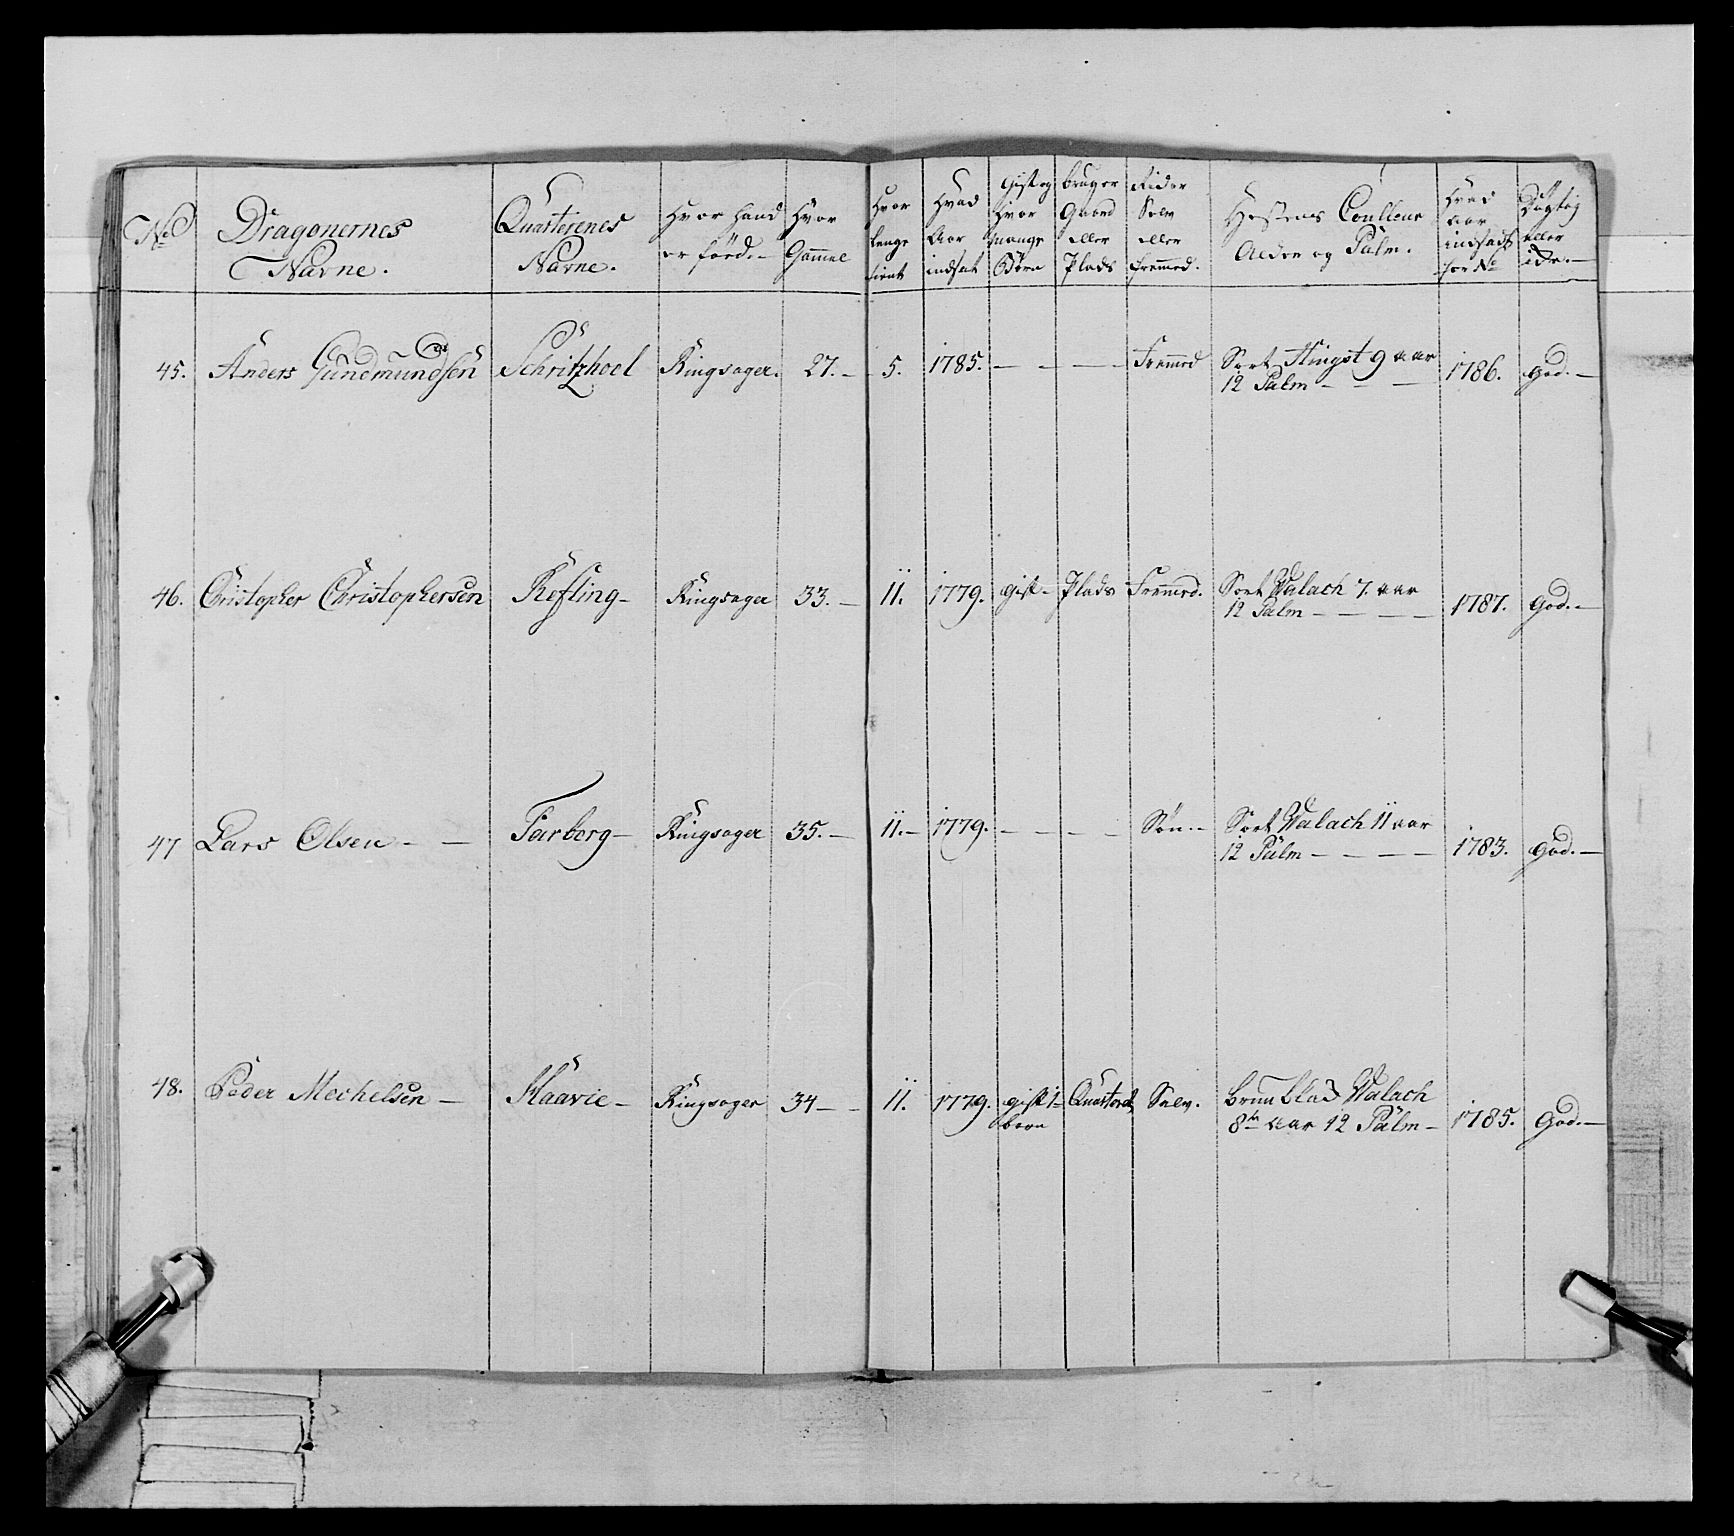 No | Dragonernes Navne. | Quarterenes Navne. | Hvor hand er förd.- | Hvor Gammel | Hvor lenge tient | Hvad Aar indsat | Gift og Hvor mange Börn | bruger Gaard eller Plads | Rider Selv eller fremmed. | Hestens Coulleur Alder og Palm. | Hvad Aar indsadt for No | Dygtig eller ide.-
45. | Anders Gundmundsen | Schritzhoel | Ringsager. | 27.- | 5. | 1785. | - - | - - | Fremmed | Sort Hingst 9 aar 12 Palm - - - | 1786. | god.-
46. | Christopher Christophersen | Kefling- | Ringsager | 33.- | 11. | 1779. | gift- | Plads | Fremmed. | Sort Walach 7. aar 12 Palm - - - - | 1787. | god.-
47 | Lars Olsen - - | Farberg- | Ringsager | 35.- | 11.- | 1779. | - - | - - | Sön.- | Sort Walach 11 aar 12 Palm - - - - | 1783. | god.-
48. | Peder Mechelsen - | Haavie- | Ringsager | 34- - | 11. | 1779. | gift 1- barn | Quarteret | Selv. | brun blad Walach 8te aar 12 Palm- | 1785. | god.-